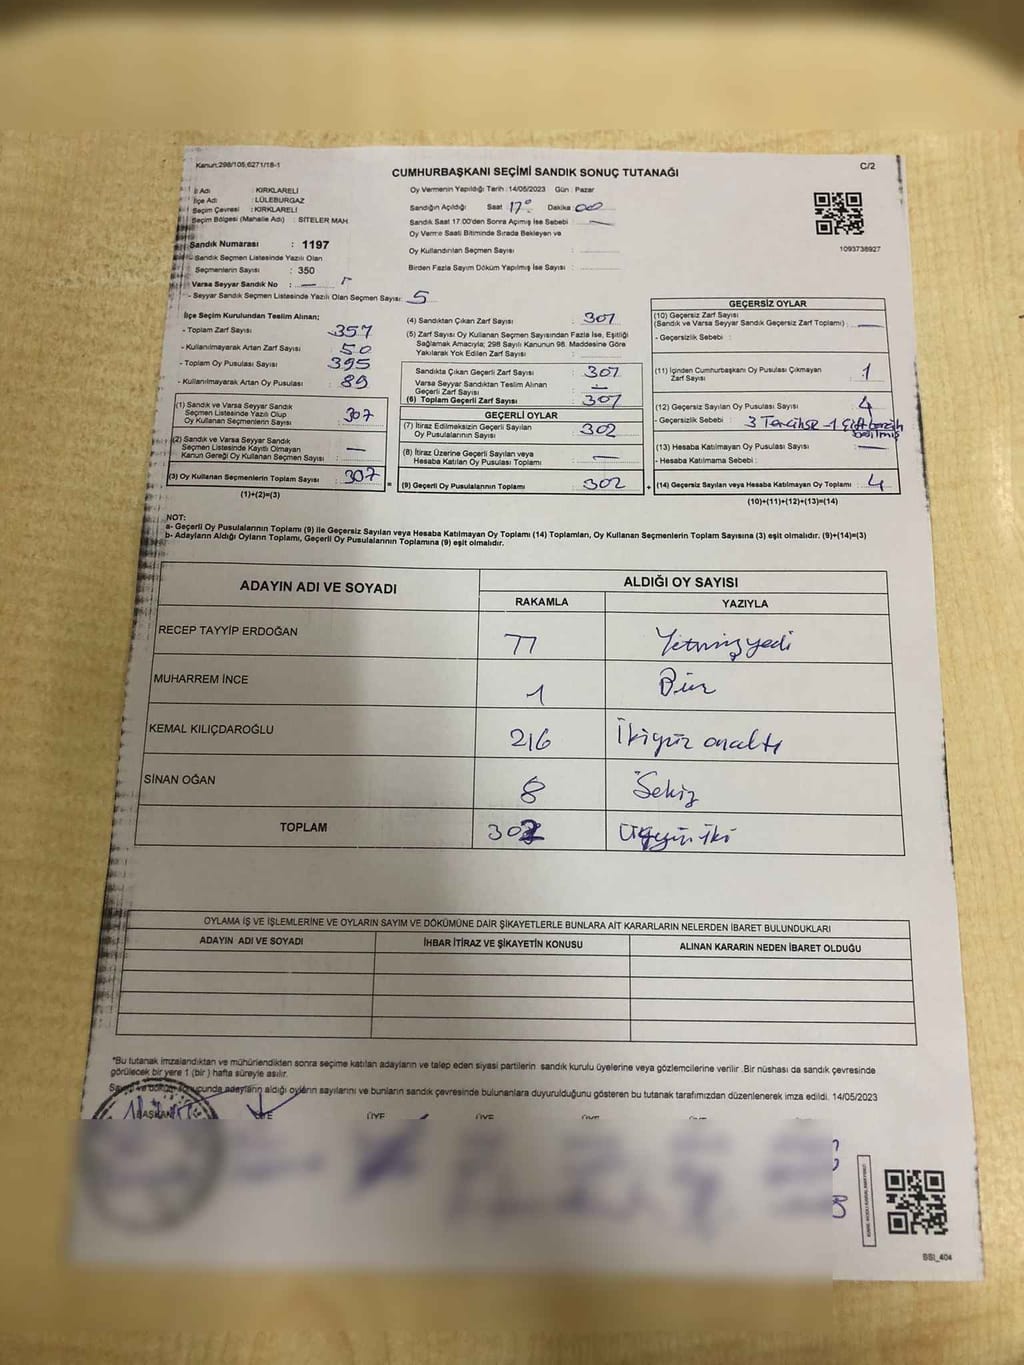 Kanun:298/105;6271/18-1
C/2
CUMHURBAŞKANI SEÇİMİ SANDIK SONUÇ TUTANAĞI
İl Adı : KIRKLARELİ
İlçe Adı : LÜLEBURGAZ
Seçim Çevresi : KIRKLARELİ
Seçim Bölgesi (Mahalle Adı) : SİTELER MAH.
Sandık Numarası : 1197
Sandık Seçmen Listesinde Yazılı Olan
Seçmenlerin Sayısı : 350
Varsa Seyyar Sandık No : —
- Seyyar Sandık Seçmen Listesinde Yazılı Olan Seçmen Sayısı: 5
Oy Vermenin Yapıldığı Tarih : 14/05/2023 Gün : Pazar
Sandığın Açıldığı Saat 17:00 Dakika : 00
Sandık Saat 17.00'den Sonra Açılmış İse Sebebi : —
Oy Verme Saati Bitiminde Sırada Bekleyen ve
Oy Kullandırılan Seçmen Sayısı :
Birden Fazla Sayım Döküm Yapılmış İse Sayısı :
1093738927
İlçe Seçim Kurulundan Teslim Alınan;
- Toplam Zarf Sayısı : 357
- Kullanılmayarak Artan Zarf Sayısı : 50
- Toplam Oy Pusulası Sayısı : 395
- Kullanılmayarak Artan Oy Pusulası : 89
(1) Sandık ve Varsa Seyyar Sandık
Seçmen Listesinde Yazılı Olup
Oy Kullanan Seçmenlerin Sayısı : 307
(2) Sandık ve Varsa Seyyar Sandık
Seçmen Listesinde Kayıtlı Olmayan
Kanun Gereği Oy Kullanan Seçmen Sayısı : —
(3) Oy Kullanan Seçmenlerin Toplam Sayısı : 307
(1)+(2)=(3)
(4) Sandıktan Çıkan Zarf Sayısı : 307
(5) Zarf Sayısı Oy Kullanan Seçmen Sayısından Fazla İse, Eşitliği
Sağlamak Amacıyla; 298 Sayılı Kanunun 98. Maddesine Göre
Yakılarak Yok Edilen Zarf Sayısı :
Sandıkta Çıkan Geçerli Zarf Sayısı : 307
Varsa Seyyar Sandıktan Teslim Alınan
Geçerli Zarf Sayısı : —
(6) Toplam Geçerli Zarf Sayısı : 307
GEÇERLİ OYLAR
(7) İtiraz Edilmeksizin Geçerli Sayılan
Oy Pusulalarının Sayısı : 302
(8) İtiraz Üzerine Geçerli Sayılan veya
Hesaba Katılan Oy Pusulası Toplamı : —
(9) Geçerli Oy Pusulalarının Toplamı : 302
GEÇERSİZ OYLAR
(10) Geçersiz Zarf Sayısı
(Sandık ve Varsa Seyyar Sandık Geçersiz Zarf Toplamı) : —
- Geçersizlik Sebebi :
(11) İçinden Cumhurbaşkanı Oy Pusulası Çıkmayan
Zarf Sayısı : 1
(12) Geçersiz Sayılan Oy Pusulası Sayısı : 4
- Geçersizlik Sebebi : 3 Tercihsz - 1 Çift tercih
edilmiş
(13) Hesaba Katılmayan Oy Pusulası Sayısı : —
- Hesaba Katılmama Sebebi :
(14) Geçersiz Sayılan veya Hesaba Katılmayan Oy Toplamı : 4
(10)+(11)+(12)+(13)=(14)
NOT:
a- Geçerli Oy Pusulalarının Toplamı (9) ile Geçersiz Sayılan veya Hesaba Katılmayan Oy Toplamı (14) Toplamları, Oy Kullanan Seçmenlerin Toplam Sayısına (3) eşit olmalıdır. (9)+(14)=(3)
b- Adayların Aldığı Oyların Toplamı, Geçerli Oy Pusulalarının Toplamına (9) eşit olmalıdır.
ADAYIN ADI VE SOYADI ALDIĞI OY SAYISI
RAKAMLA YAZIYLA
RECEP TAYYİP ERDOĞAN 77 Yetmiş yedi
MUHARREM İNCE 1 Bir
KEMAL KILIÇDAROĞLU 216 İkiyüz onaltı
SİNAN OĞAN 8 Sekiz
TOPLAM 302 Üçyüz iki
OYLAMA İŞ VE İŞLEMLERİNE VE OYLARIN SAYIM VE DÖKÜMÜNE DAİR ŞİKAYETLERLE BUNLARA AİT KARARLARIN NELERDEN İBARET BULUNDUKLARI
ADAYIN ADI VE SOYADI İHBAR İTİRAZ VE ŞİKAYETİN KONUSU ALINAN KARARIN NEDEN İBARET OLDUĞU
*Bu tutanak imzalandıktan ve mühürlendikten sonra seçime katılan adayların ve talep eden siyasi partilerin sandık kurulu üyelerine veya gözlemcilerine verilir .Bir nüshası da sandık çevresinde
görülecek bir yere 1 (bir ) hafta süreyle asılır.
Sayım ve döküm sonucunda adayların aldığı oyların sayılarını ve bunların sandık çevresinde bulunanlara duyurulduğunu gösteren bu tutanak tarafımızdan düzenlenerek imza edildi. 14/05/2023
BAŞKAN ÜYE ÜYE ÜYE ÜYE
SSI_404